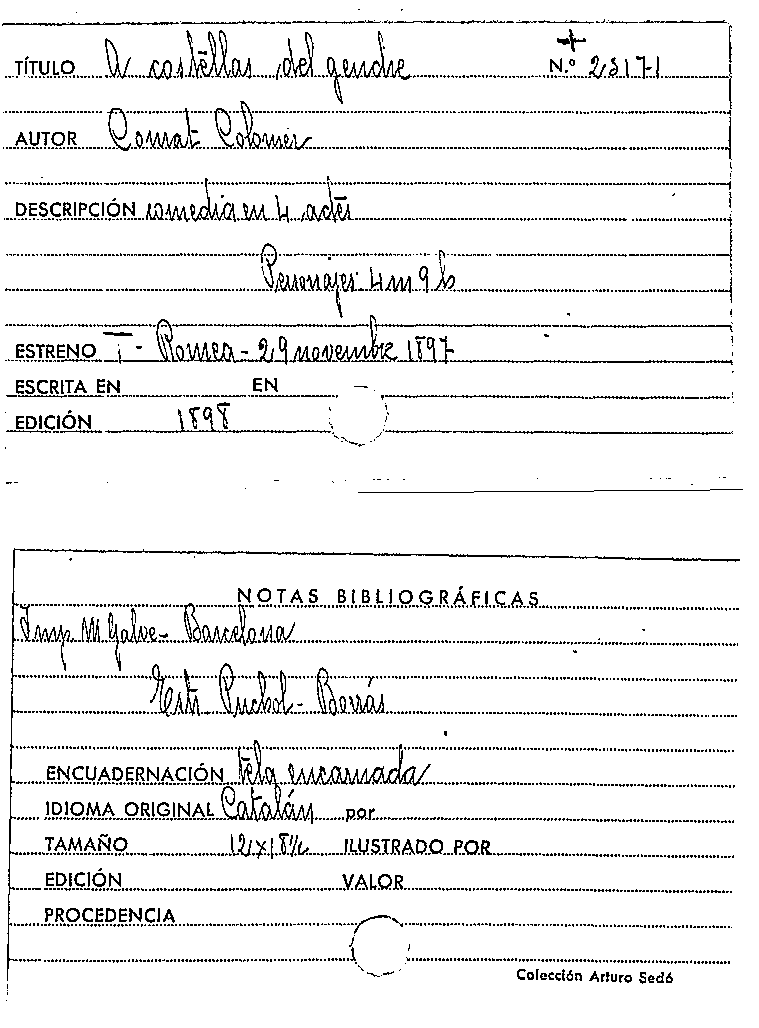 TÍTULO A costellas del gendre N.º 23171
AUTOR Conrat Colomer
DESCRIPCIÓN comedia en 4 actes
Personajes 4 m 9 h
ESTRENO T - Romea - 29 novembre 1897
ESCRITA EN EN
EDICIÓN 1898
NOTAS BIBLIOGRÁFICAS
Imp M Galve - Barcelona
Estr. Puchol - Borrás
ENCUADERNACIÓN tela encarnada
IDIOMA ORIGINAL Catalán por
TAMAÑO 12 x 18½ ILUSTRADO POR
EDICIÓN VALOR
PROCEDENCIA
Colección Arturo Sedó